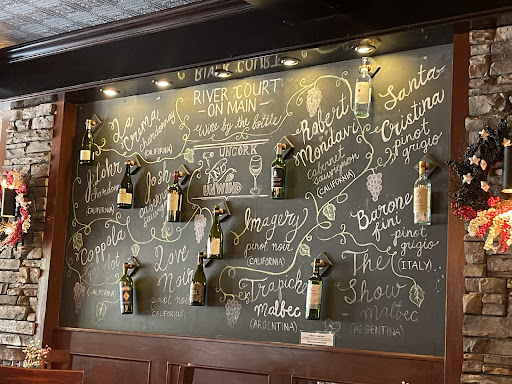 BLACK
RIVER COURT
ON MAIN
Wine by the bottle
UNCORK
AND
UNWIND
La
Crema
chardonnay
(CALIFORNIA)
J. Lohr
chardonnay
CALIFORNIA
Josh
cabernet
(CALIFORNIA)
Coppola
(CALIFORNIA)
Love
Noir
pinot noir
(CALIFORNIA)
Imagery
pinot noir
(CALIFORNIA)
Trapiche
Malbec
(ARGENTINA)
Robert
Mondavi
cabernet
sauvignon
(CALIFORNIA)
Santa
Cristina
pinot
grigio
Barone
Fini
pinot
grigio
(ITALY)
The
Show
malbec
(ARGENTINA)